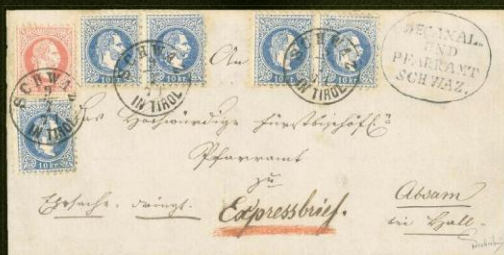 DECANAL-
UND
PFARRAMT
SCHWAZ.
SCHWAZ
IN TIROL
SCHWAZ
IN TIROL
SCHWAZ
IN TIROL
10 KR
10 KR
10 KR
10 KR
10 KR
An
Das Hochwürdige Fürstbischöfl:
Pfarramt
zu
Absam
Expressbrief.
bei Hall.